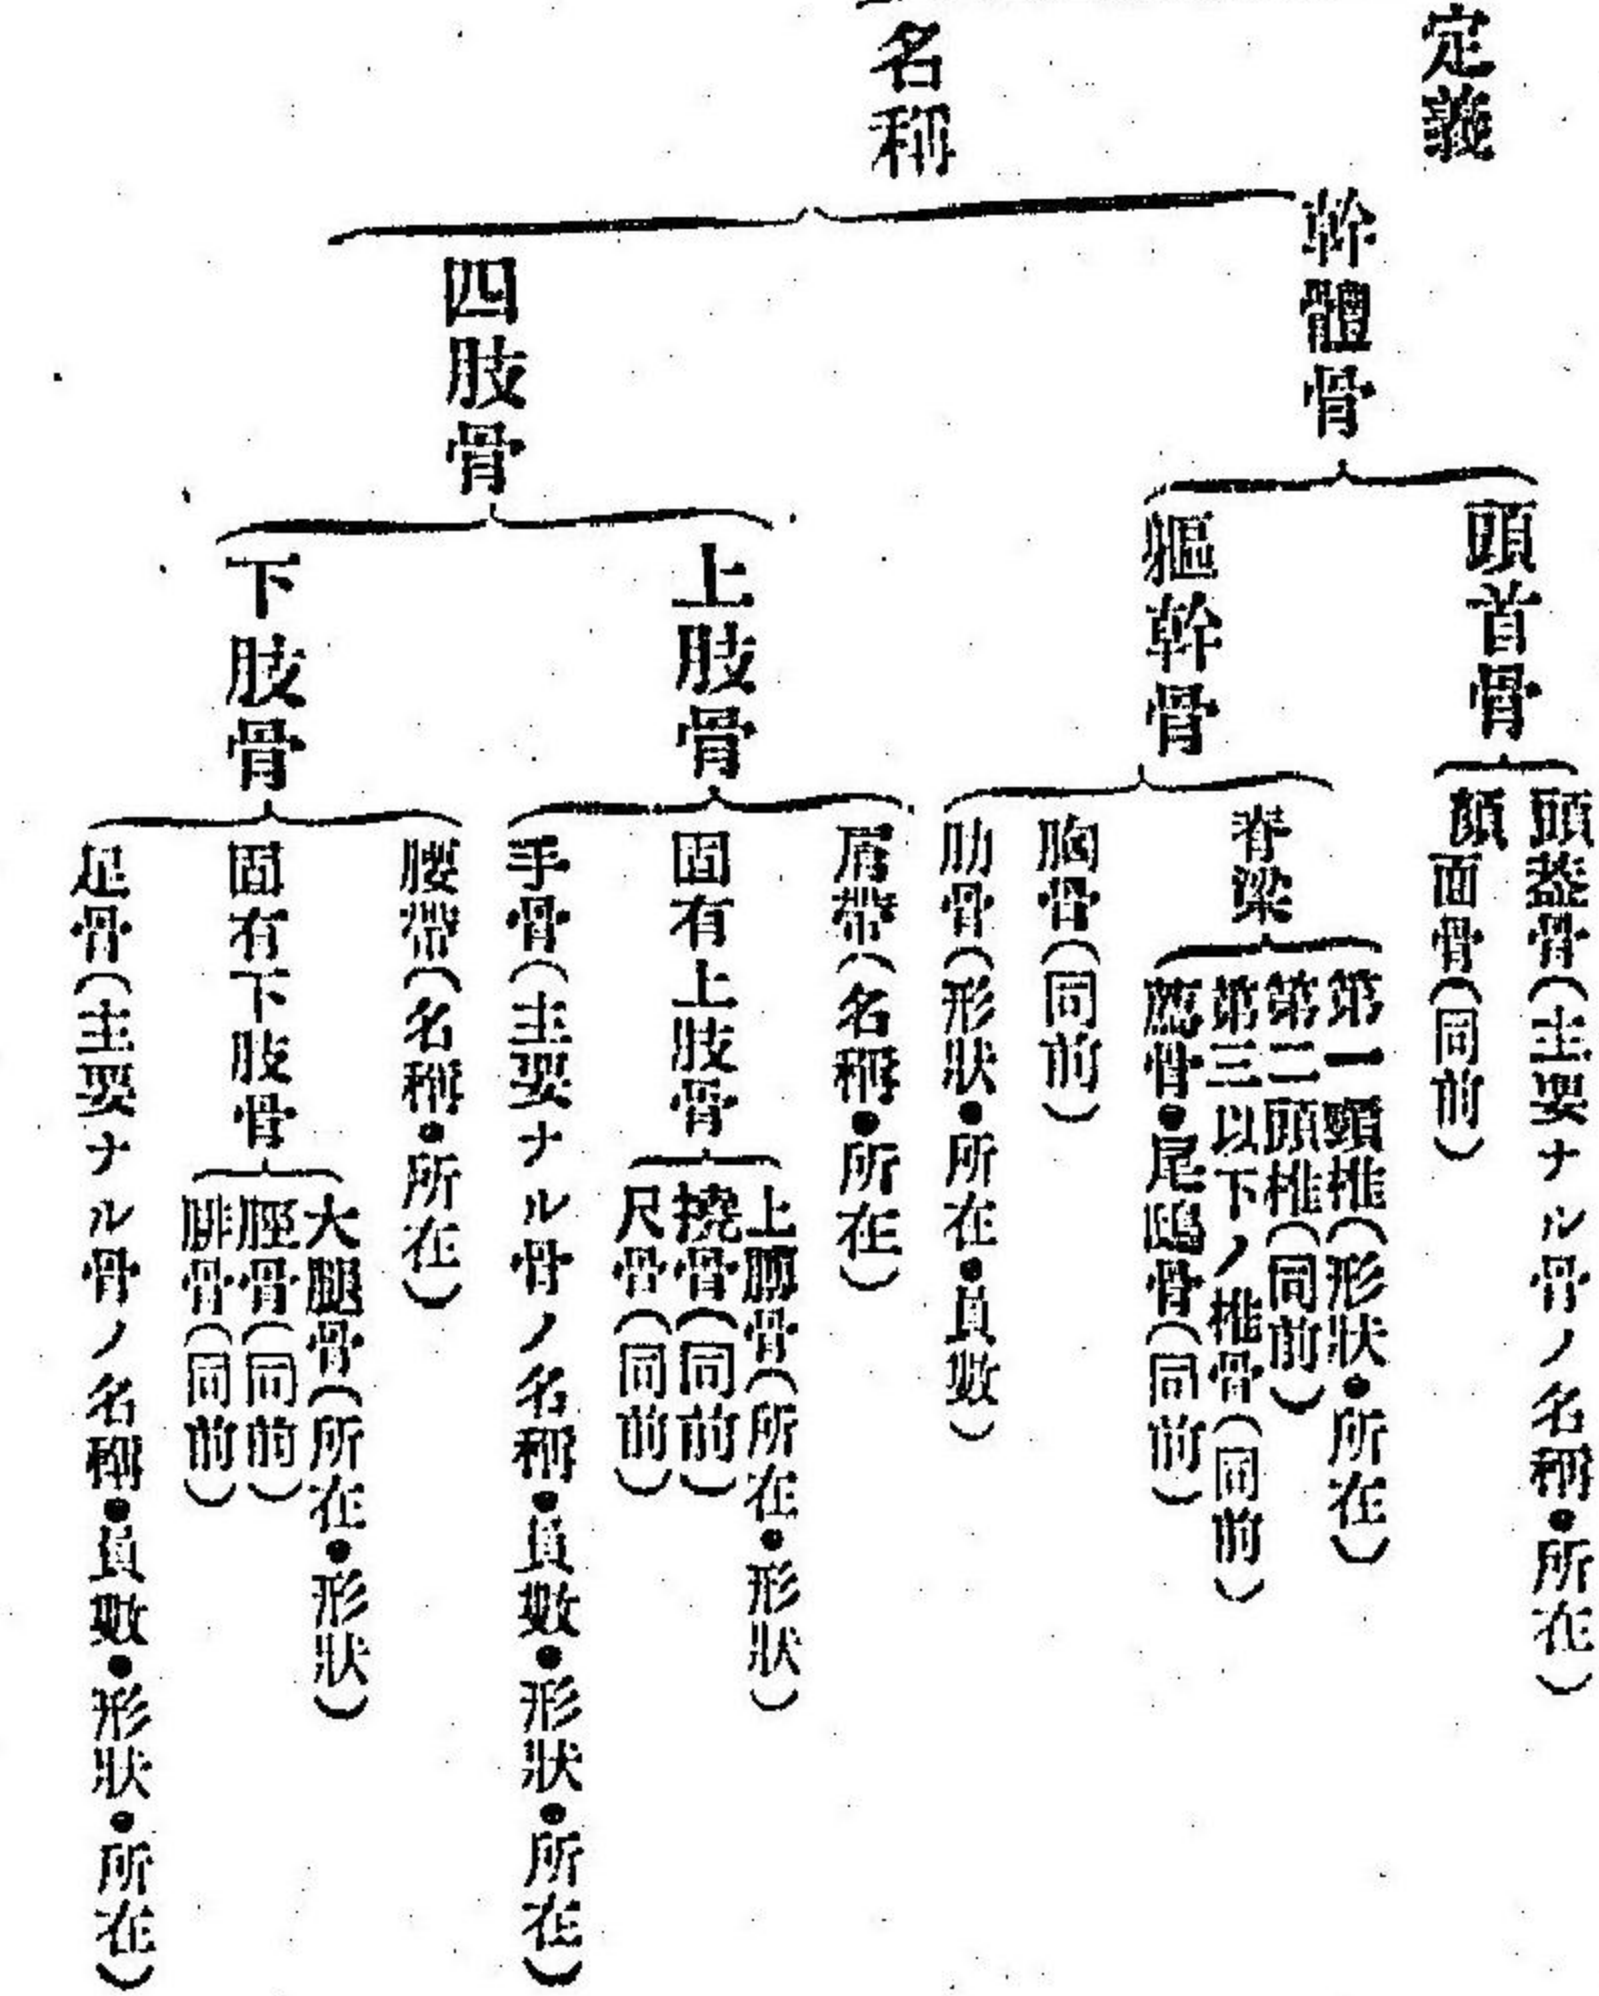 定義
名稱
幹體骨
頭首骨
頭蓋骨(主要ナル骨ノ名稱●所在)
顏面骨(同前)
軀幹骨
脊梁
第一頸椎(形狀●所在)
第二頸椎(同前)
第三以下ノ椎骨(同前)
薦骨●尾䯊骨(同前)
胸骨(同前)
肋骨(形狀●所在●員數)
四肢骨
上肢骨
肩帶(名稱●所在)
固有上肢骨
上膊骨(所在●形狀)
撓骨(同前)
尺骨(同前)
手骨(主要ナル骨ノ名稱●員數●形狀●所在)
下肢骨
腰帶(名稱●所在)
固有下肢骨
大腿骨(所在●形狀)
脛骨(同前)
腓骨(同前)
足骨(主要ナル骨ノ名稱●員數●形狀●所在)